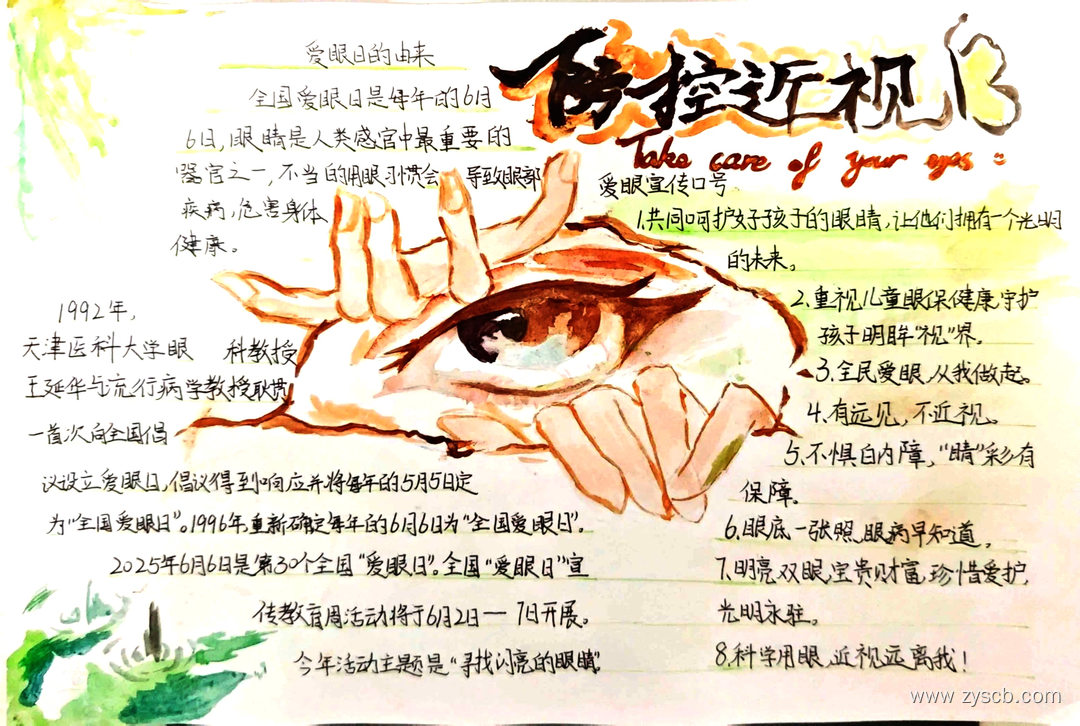 防控近视
Take care of your eyes
爱眼日的由来
全国爱眼日是每年的6月
6日,眼睛是人类感官中最重要的
器官之一,不当的用眼习惯会 导致眼部
疾病,危害身体
健康。
1992年,
天津医科大学眼 科教授
王延华与流行病学教授耿贯
一首次向全国倡
议设立爱眼日,倡议得到响应并将每年的5月5日定
为“全国爱眼日”。1996年,重新确定每年的6月6日为“全国爱眼日”。
2025年6月6日是第30个全国“爱眼日”。全国“爱眼日”宣
传教育周活动将于6月2日一7日开展。
今年活动主题是“寻找闪亮的眼睛”
爱眼宣传口号
1.共同呵护好孩子的眼睛,让他们拥有一个光明
的未来。
2.重视儿童眼保健康,守护
孩子明眸“视”界。
3.全民爱眼,从我做起。
4.有远见,不近视。
5.不惧白内障,“睛”彩有
保障。
6.眼底一张照,眼病早知道。
7.明亮双眼,宝贵财富,珍惜爱护,
光明永驻。
8.科学用眼,近视远离我!
www.zyscb.com